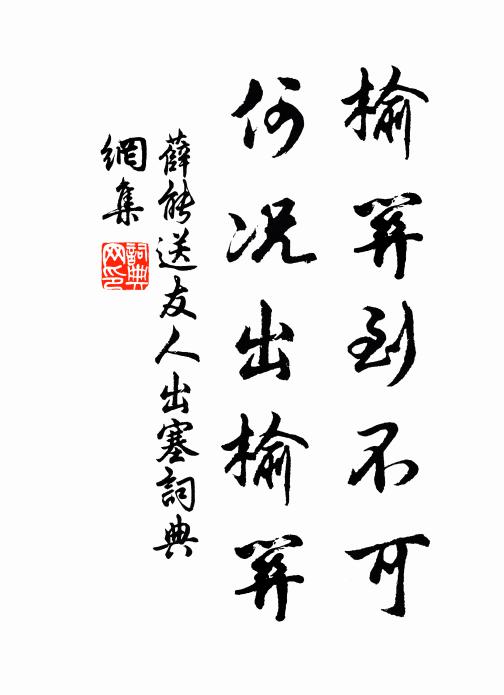 榆關到不可
何况出榆關
薛能送友人出塞詞典
網集
詞典
网印